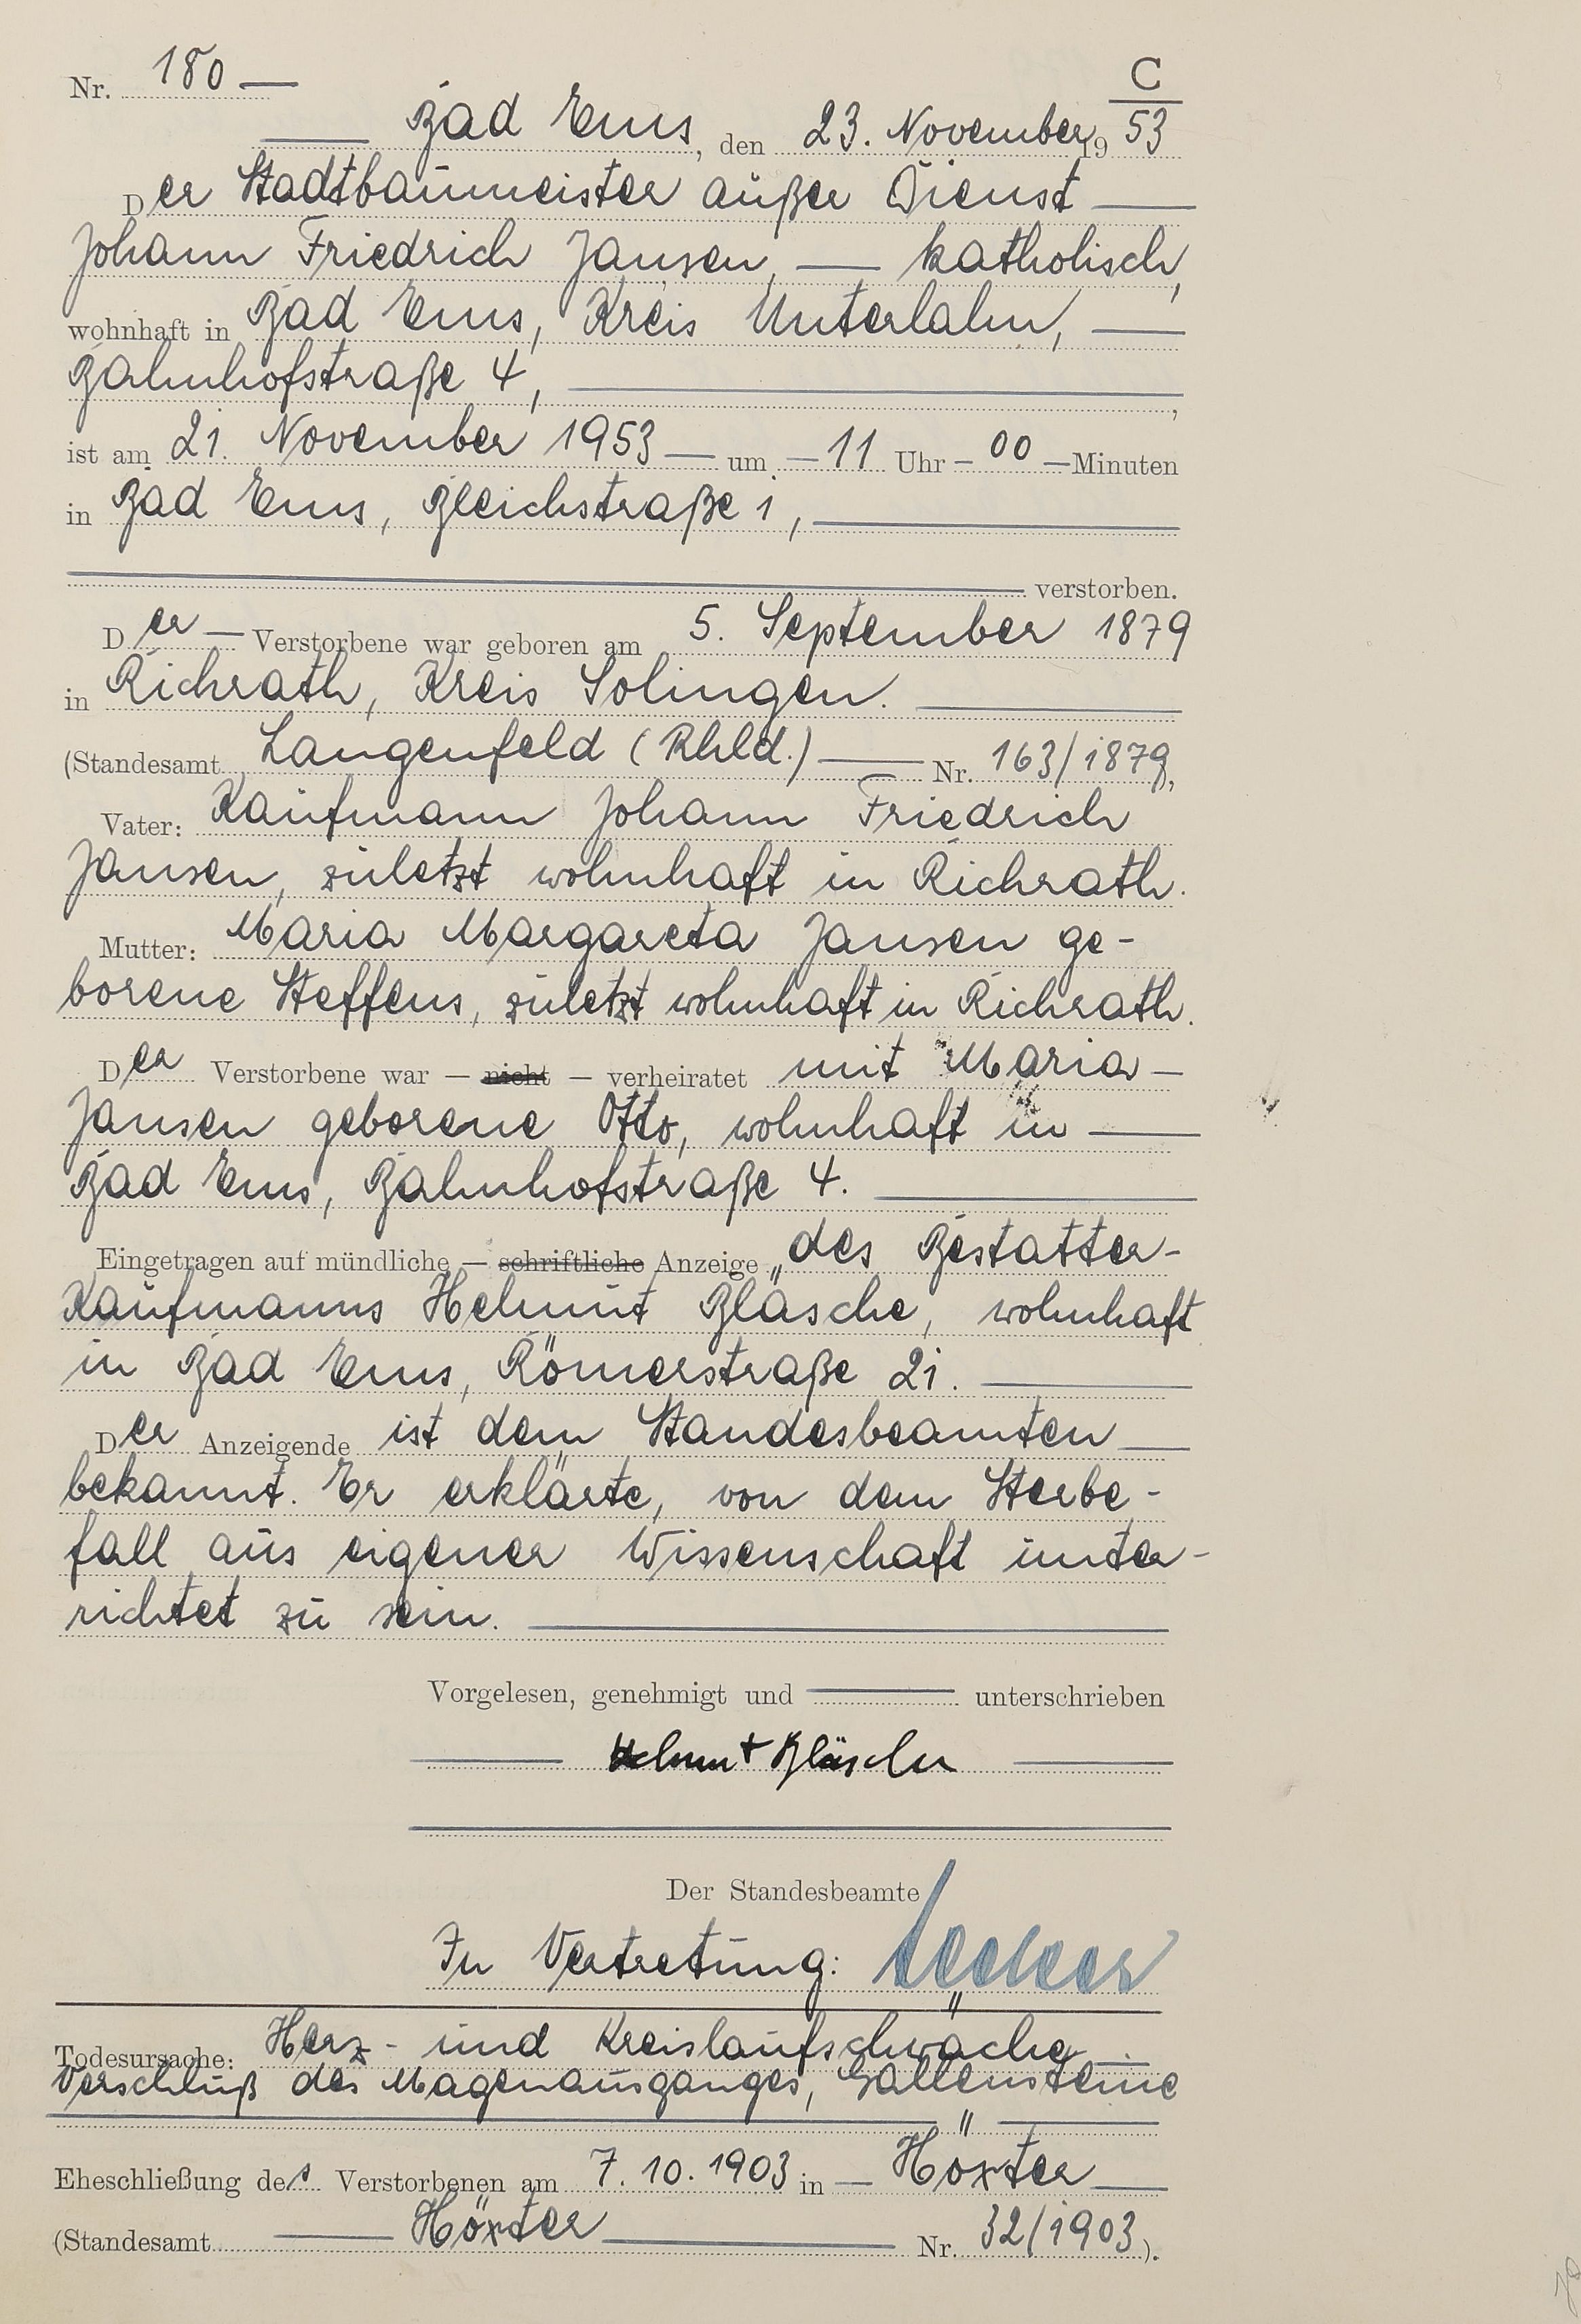 C
Nr. 180 —
— Bad Ems, den 23. November 1953
Der Stadtbaumeister außer Dienst —
Johann Friedrich Jansen, — katholisch,
wohnhaft in Bad Ems, Kreis Unterlahn, —
Bahnhofstraße 4, — ,
ist am 21. November 1953 — um — 11 Uhr — 00 — Minuten
in Bad Ems, Bleichstraße 1, —
— verstorben.
Der — Verstorbene war geboren am 5. September 1879
in Richrath, Kreis Solingen. —
(Standesamt Langenfeld (Rhld.) — Nr. 163/1879,
Vater: Kaufmann Johann Friedrich
Jansen, zuletzt wohnhaft in Richrath.
Mutter: Maria Margareta Jansen ge-
borene Steffens, zuletzt wohnhaft in Richrath.
Der Verstorbene war — nicht — verheiratet mit Maria —
Jansen geborene Otto, wohnhaft in —
Bad Ems, Bahnhofstraße 4. —
Eingetragen auf mündliche — schriftliche Anzeige des Bestatter-
Kaufmanns Helmut Bläsche, wohnhaft
in Bad Ems, Römerstraße 21. —
Der Anzeigende ist dem Standesbeamten —
bekannt. Er erklärte, von dem Sterbe-
fall aus eigener Wissenschaft unter-
richtet zu sein. —
Vorgelesen, genehmigt und — unterschrieben
— Helmut Bläsche —
Der Standesbeamte
In Vertretung:
Todesursache: Herz- und Kreislaufschwäche —
Verschluß des Magenausganges, Gallensteine
Eheschließung des Verstorbenen am 7.10.1903 in — Höxter —
(Standesamt — Höxter — Nr. 32/1903).